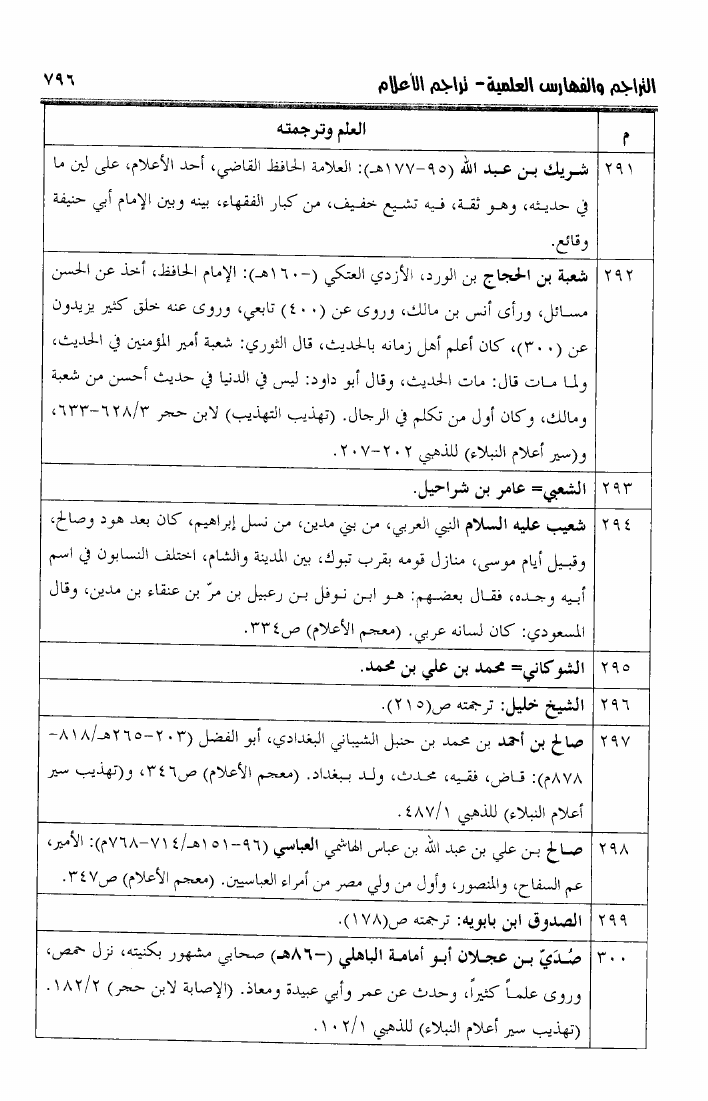 التراجم والفهارس العلمية- تراجم الأعلام
٧٩٦
م
العلم وترجمته
٢٩١
شريك بن عبد الله (٩٥-١٧٧هـ): العلامة الحافظ القاضي، أحد الأعلام، على لين ما
في حديثه، وهو ثقة، فيه تشيع خفيف، من كبار الفقهاء، بينه وبين الإمام أبي حنيفة
وقائع.
٢٩٢
شعبة بن الحجاج بن الورد، الأزدي العتكي (-١٦٠هـ): الإمام الحافظ، أخذ عن الحسن
مسائل، ورأى أنس بن مالك، وروى عن (٤٠٠) تابعي، وروى عنه خلق كثير يزيدون
عن (٣٠٠)، كان أعلم أهل زمانه بالحديث، قال الثوري: شعبة أمير المؤمنين في الحديث،
ولما مات قال: مات الحديث، وقال أبو داود: ليس في الدنيا في حديث أحسن من شعبة
ومالك، وكان أول من تكلم في الرجال. (تهذيب التهذيب) لابن حجر ٦٢٨/٣-٦٣٣،
و(سير أعلام النبلاء) للذهبي ٢٠٢-٢٠٧.
٢٩٣
الشعبي= عامر بن شراحيل.
٢٩٤
شعيب عليه السلام النبي العربي، من بني مدين، من نسل إبراهيم، كان بعد هود وصالح،
وقبيل أيام موسى، منازل قومه بقرب تبوك، بين المدينة والشام، اختلف النسابون في اسم
أبيه وجده، فقال بعضهم: هو ابن نوفل بن رعبيل بن مرّ بن عنقاء بن مدين، وقال
المسعودي: كان لسانه عربي. (معجم الأعلام) ص٣٣٤.
٢٩٥
الشوكاني= محمد بن علي بن محمد.
٢٩٦
الشيخ خليل: ترجمته ص(٢١٥).
٢٩٧
صالح بن أحمد بن محمد بن حنبل الشيباني البغدادي، أبو الفضل (٢٠٣-٢٦٥هـ/٨١٨-
٨٧٨م): قاض، فقيه، محدث، ولد ببغداد. (معجم الأعلام) ص٣٤٦، و(تهذيب سير
أعلام النبلاء) للذهبي ٤٨٧/١.
٢٩٨
صالح بن علي بن عبد الله بن عباس الهاشمي العباسي (٩٦-١٥١هـ/٧١٤-٧٦٨م): الأمير،
عم السفاح، والمنصور، وأول من ولي مصر من أمراء العباسيين. (معجم الأعلام) ص٣٤٧.
٢٩٩
الصدوق ابن بابويه: ترجمته ص(١٧٨).
٣٠٠
صُدَيّ بن عجلان أبو أمامة الباهلي (-٨٦هـ) صحابي مشهور بكنيته، نزل حمص،
وروى علماً كثيراً، وحدث عن عمر وأبي عبيدة ومعاذ. (الإصابة لابن حجر) ١٨٢/٢.
(تهذيب سير أعلام النبلاء) للذهبي ١٠٢/١.